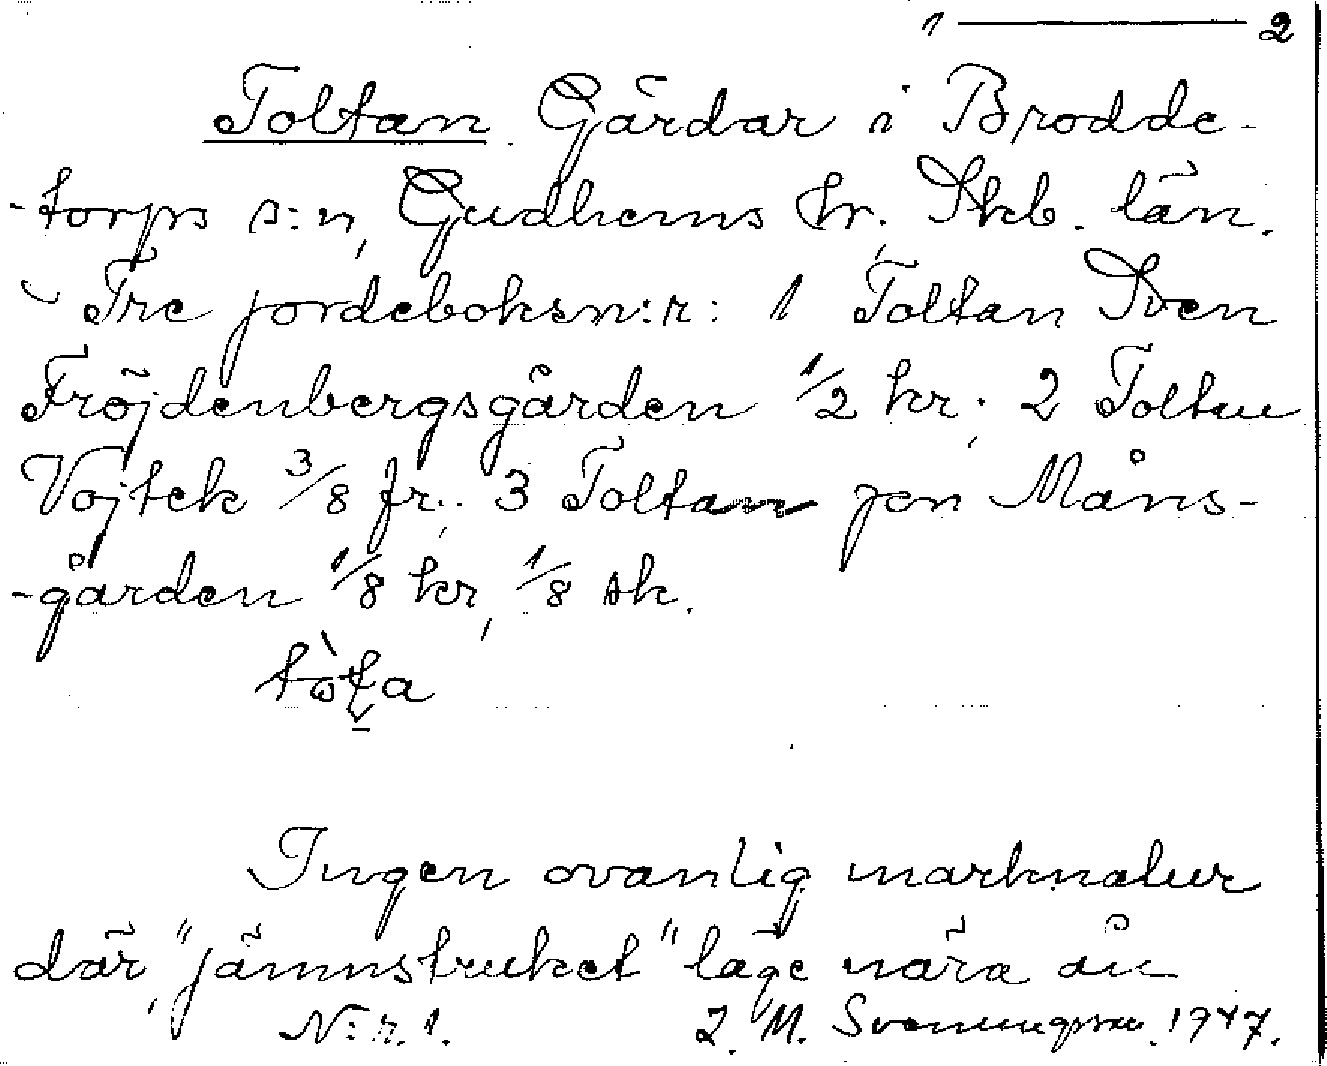 1 — 2
Toltan Gårdar i Brodde-
-torps s:n, Gudhems hr, Skb. län.
Tre jordeboksn:r: 1 Toltan Sven
Fröjdenbergsgården 1/2 kr; 2 Toltan
Vojtek 3/8 fr.; 3 Toltan Jon Måns-
-gården 1/8 kr, 1/8 sk.
Ingen ovanlig marknatur
där, "jämnstruket" läge nära ån
N:r. 1. J. M. Svenungsson. 1947.